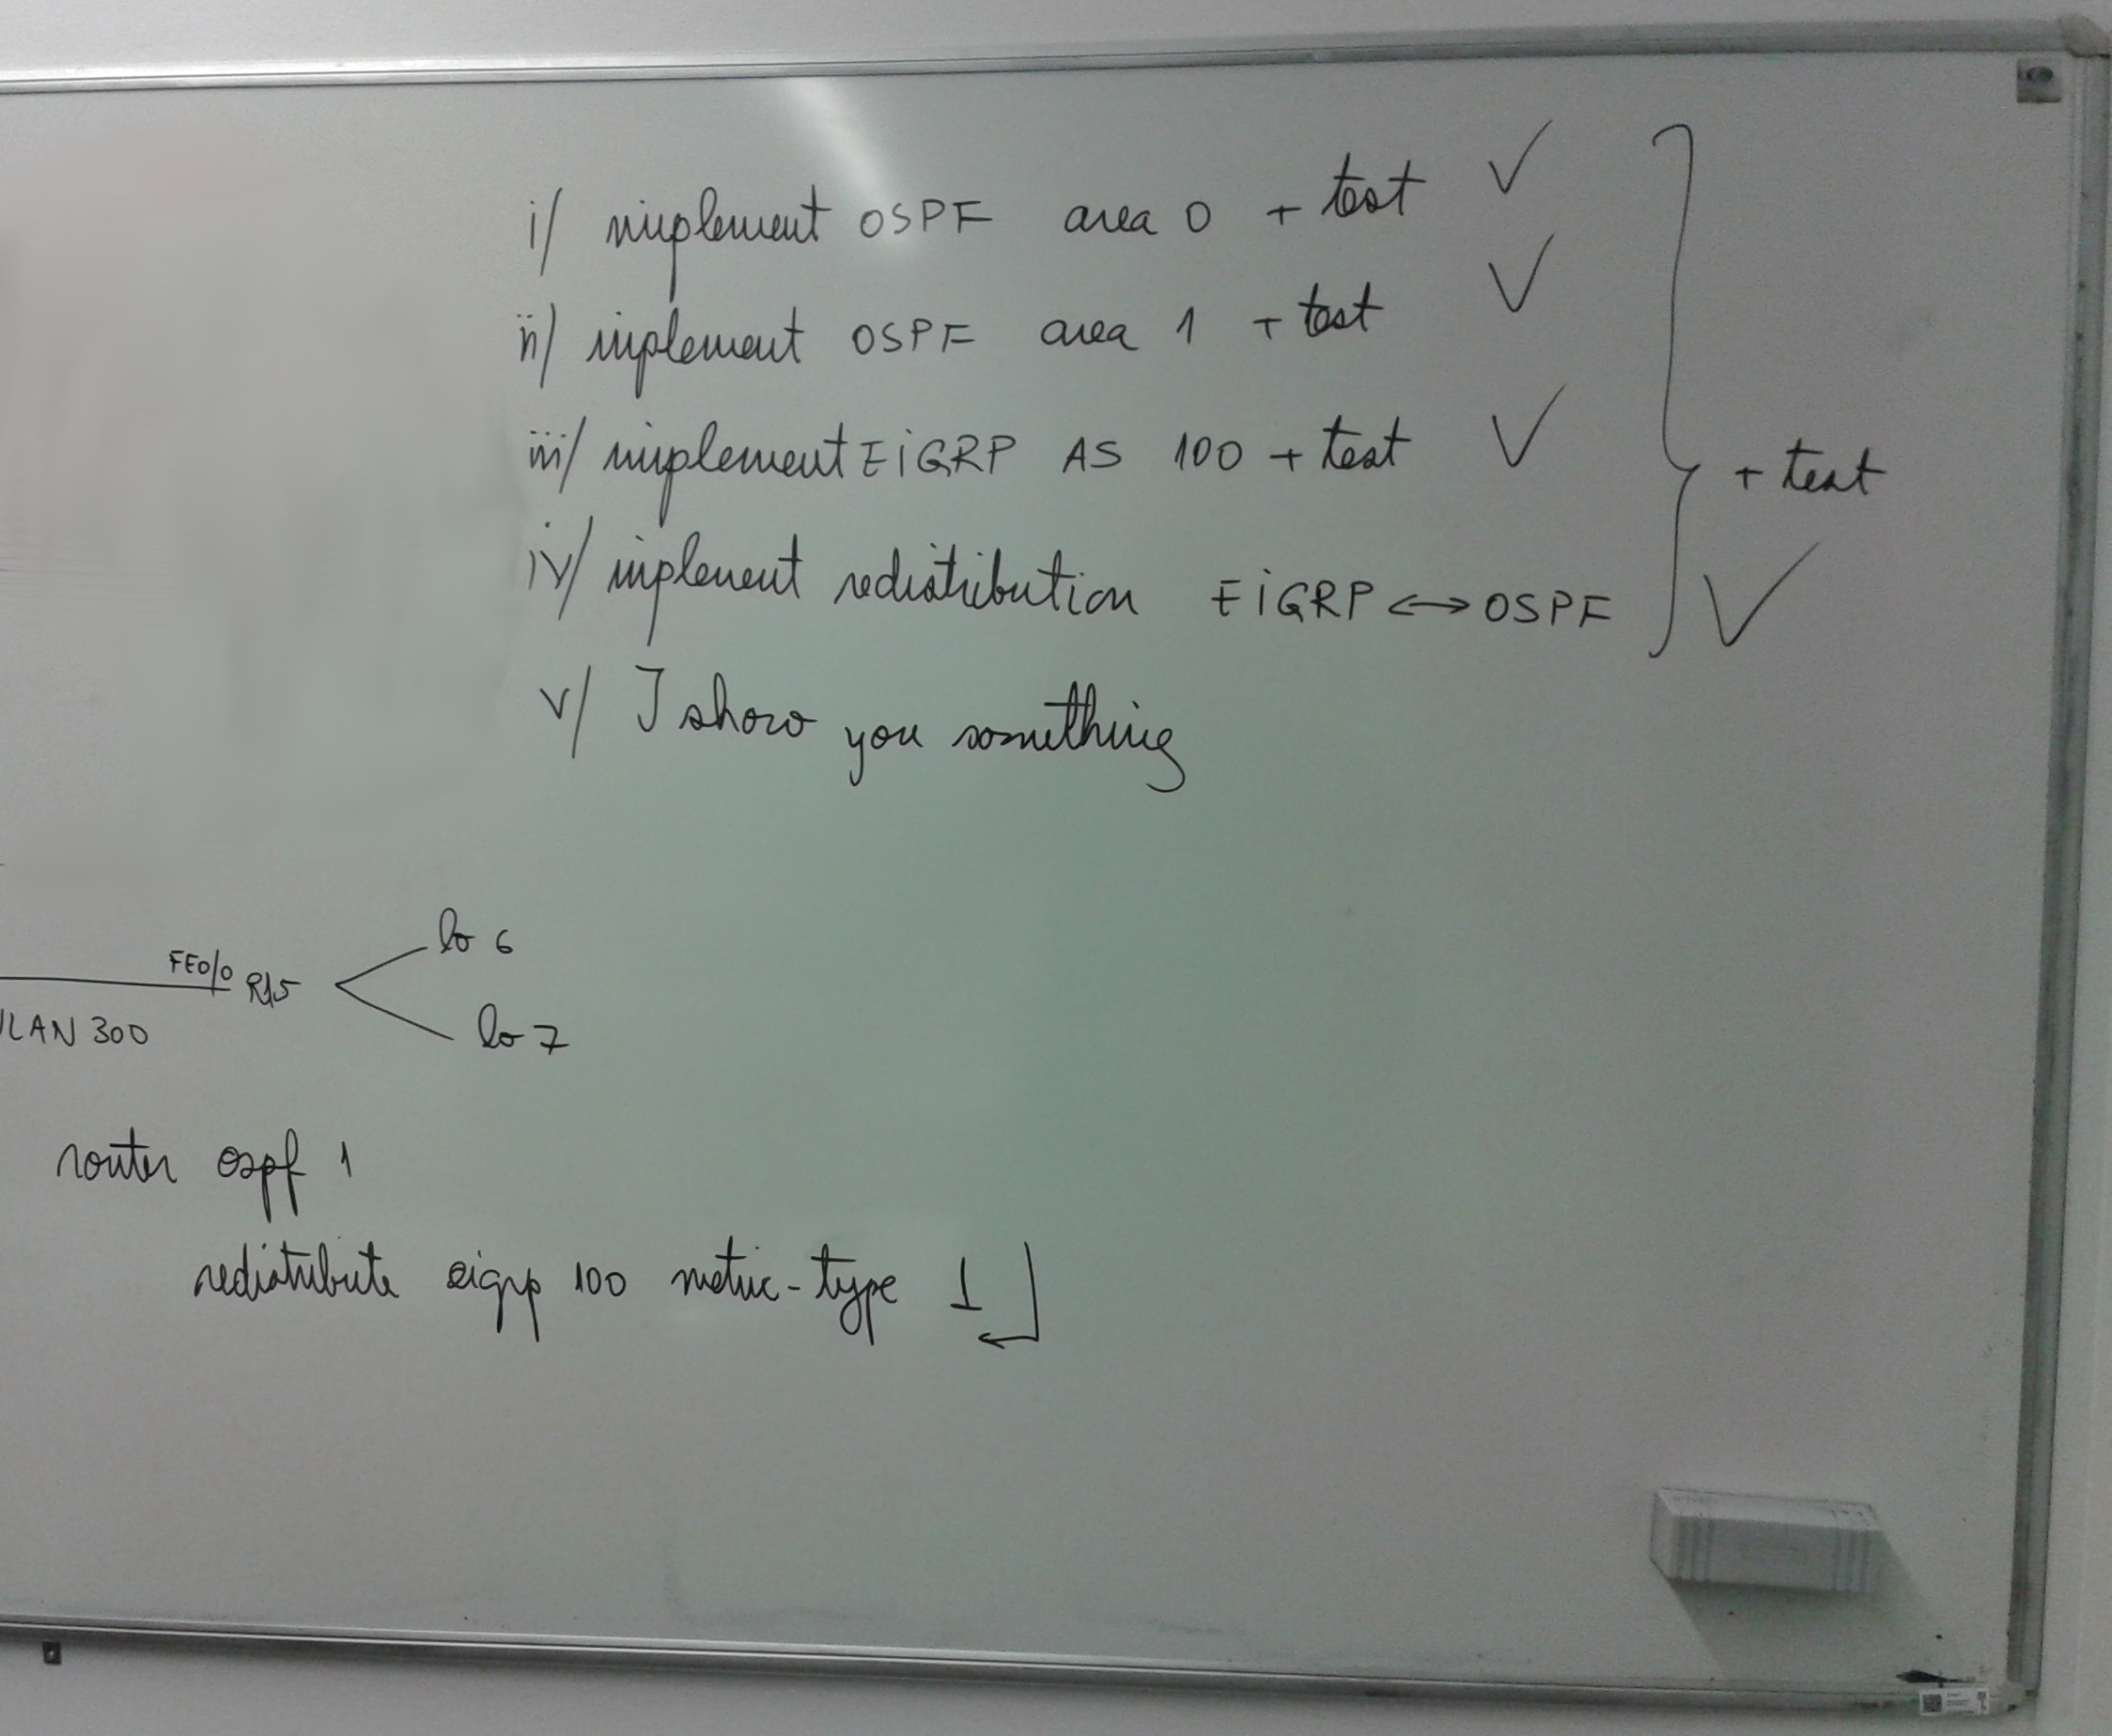 i/ implement OSPF area 0 + test ✓
ii/ implement OSPF area 1 + test ✓
iii/ implement EiGRP AS 100 + test ✓
+ test
iv/ implement redistribution EiGRP <-> OSPF ✓
v/ I show you something
lo 6
FE0/0 R15
lo 7
VLAN 300
router ospf 1
redistribute eigrp 100 metric-type 1 ↵